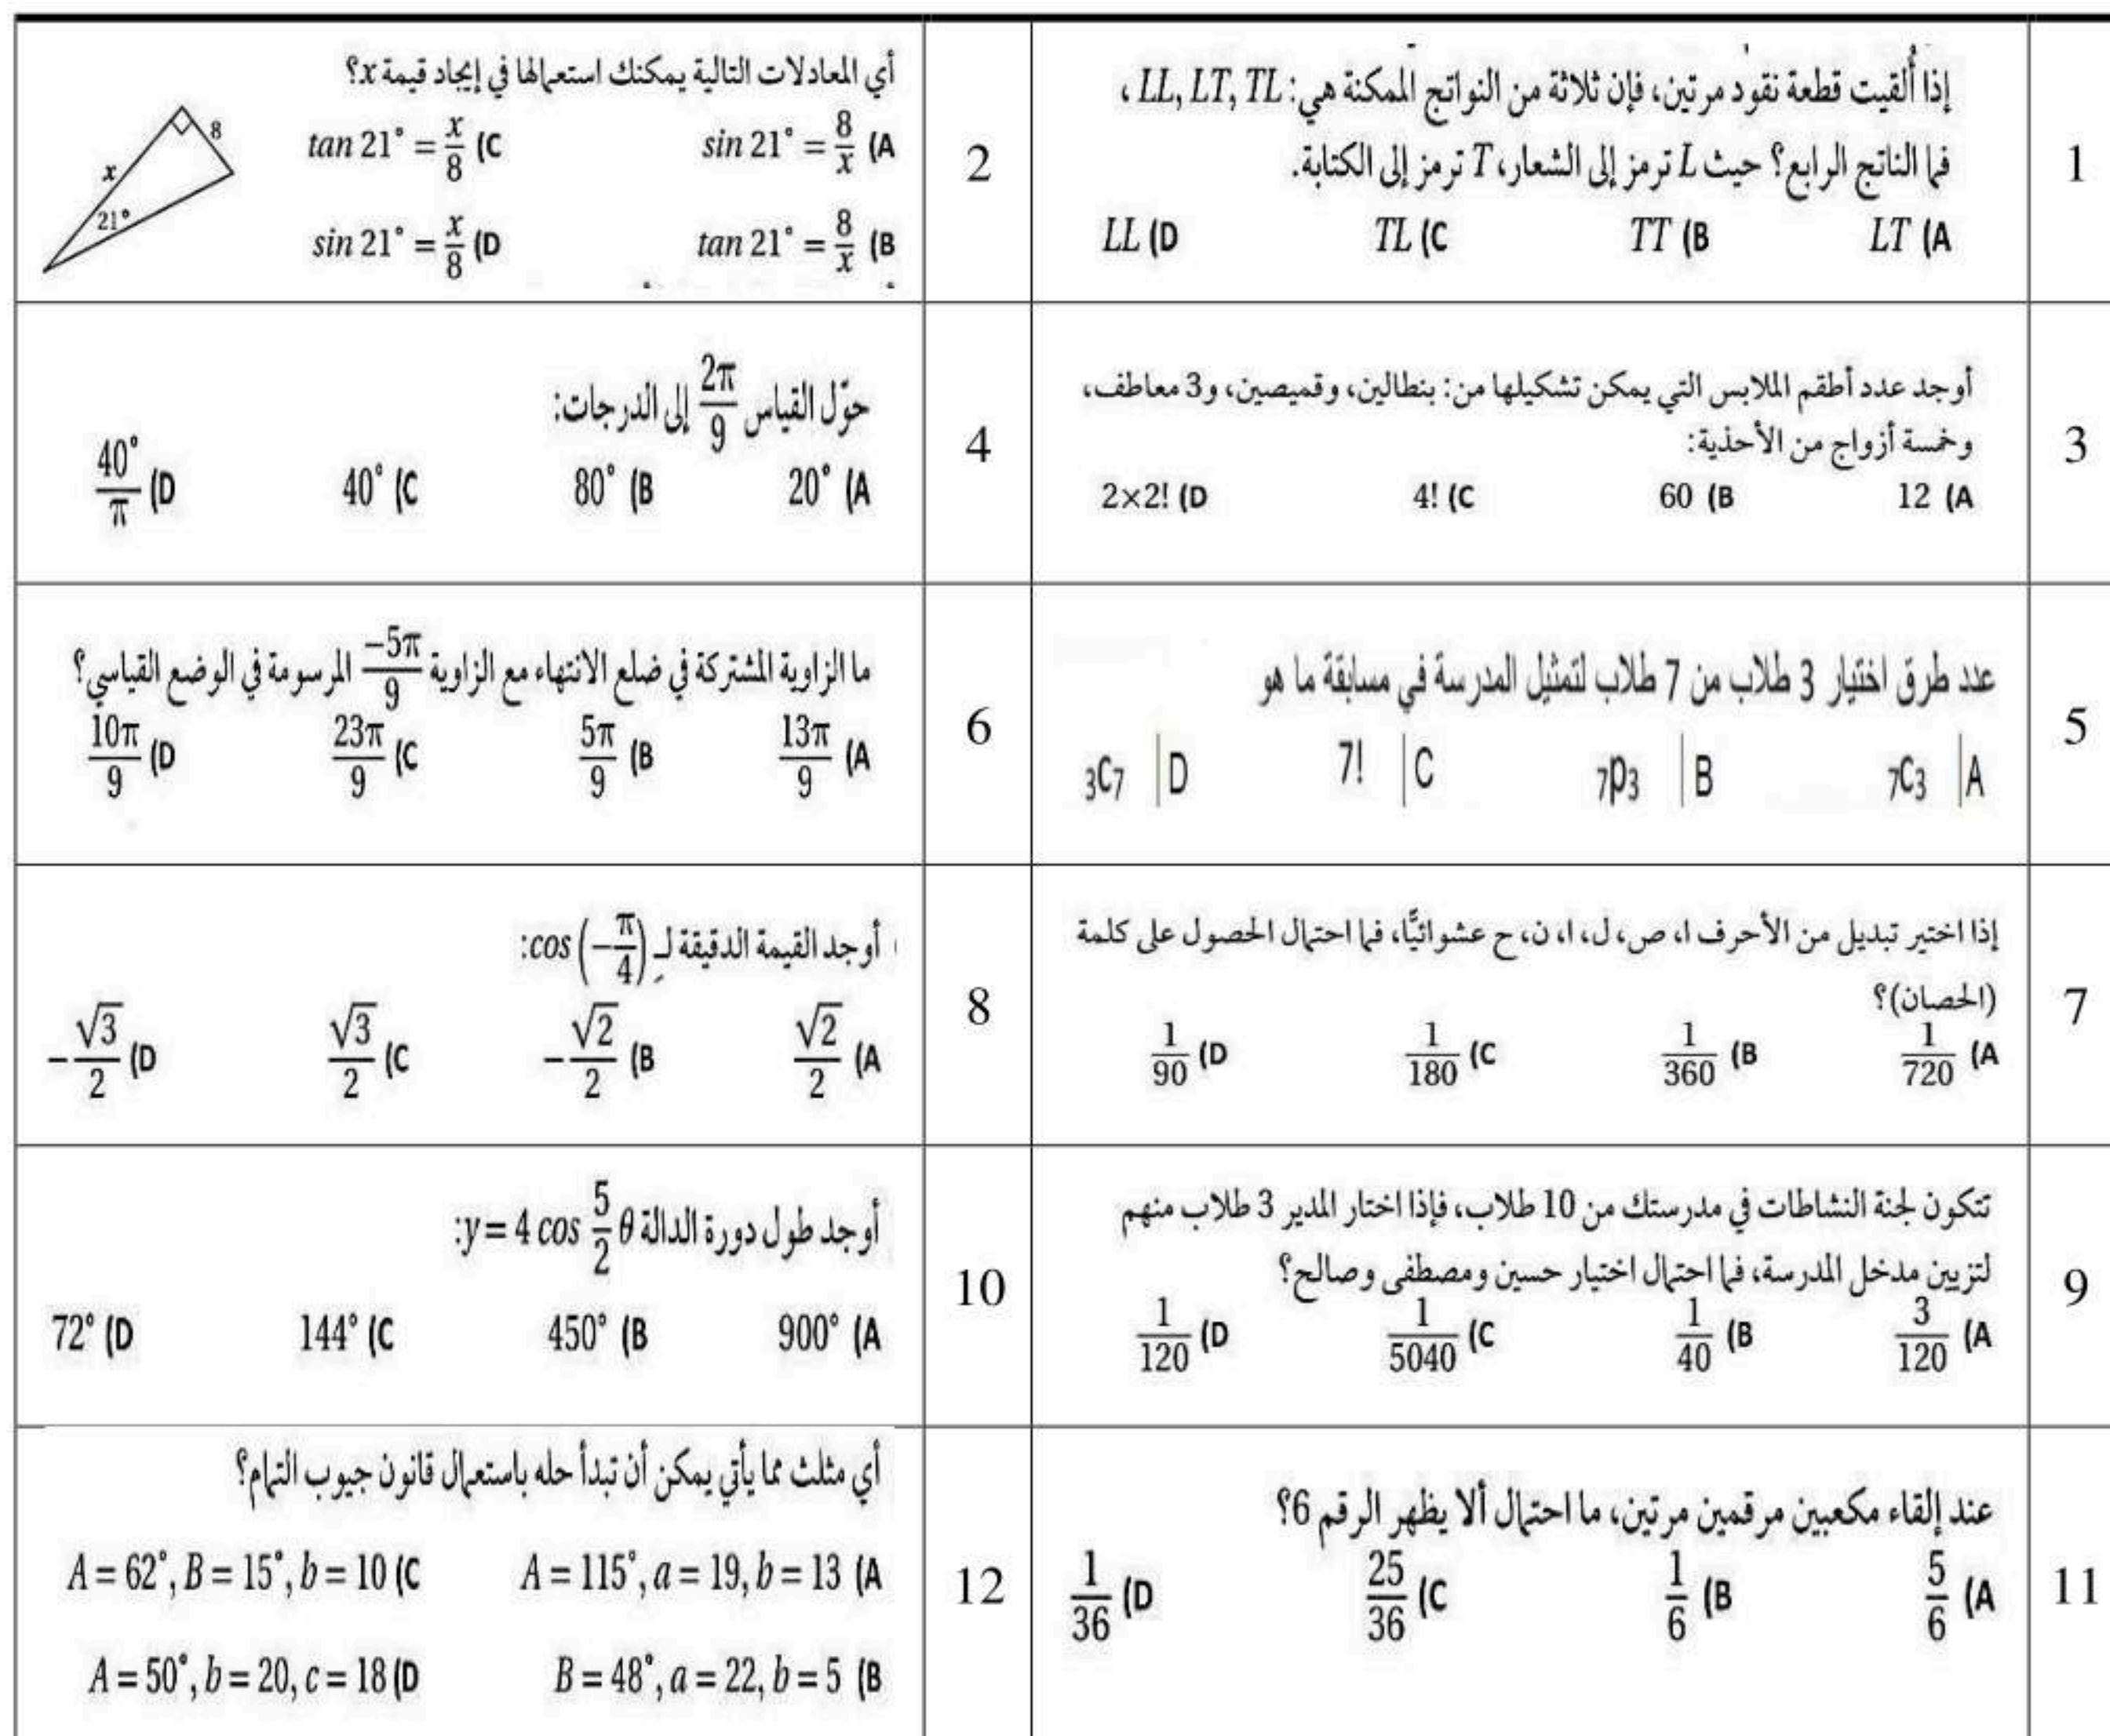 1
إذا أُلقيت قطعة نقود مرتين، فإن ثلاثة من النواتج الممكنة هي: LL, LT, TL ،
فما الناتج الرابع؟ حيث L ترمز إلى الشعار، T ترمز إلى الكتابة.
LT (A TT (B TL (C LL (D
2
أي المعادلات التالية يمكنك استعمالها في إيجاد قيمة x؟
sin 21° = 8/x (A tan 21° = x/8 (C
tan 21° = 8/x (B sin 21° = x/8 (D
8
x
21°
3
أوجد عدد أطقم الملابس التي يمكن تشكيلها من: بنطالين، وقميصين، و3 معاطف،
وخمسة أزواج من الأحذية:
12 (A 60 (B 4! (C 2×2! (D
4
حوّل القياس 2π/9 إلى الدرجات:
20° (A 80° (B 40° (C 40°/π (D
5
عدد طرق اختيار 3 طلاب من 7 طلاب لتمثيل المدرسة في مسابقة ما هو
A | ₇C₃ B | ₇p₃ C | 7! D | ₃C₇
6
ما الزاوية المشتركة في ضلع الانتهاء مع الزاوية −5π/9 المرسومة في الوضع القياسي؟
13π/9 (A 5π/9 (B 23π/9 (C 10π/9 (D
7
إذا اختير تبديل من الأحرف ا، ص، ل، ا، ن، ح عشوائيًّا، فما احتمال الحصول على كلمة
(الحصان)؟
1/720 (A 1/360 (B 1/180 (C 1/90 (D
8
أوجد القيمة الدقيقة لـ cos (−π/4):
√2/2 (A −√2/2 (B √3/2 (C −√3/2 (D
9
تتكون لجنة النشاطات في مدرستك من 10 طلاب، فإذا اختار المدير 3 طلاب منهم
لتزيين مدخل المدرسة، فما احتمال اختيار حسين ومصطفى وصالح؟
3/120 (A 1/40 (B 1/5040 (C 1/120 (D
10
أوجد طول دورة الدالة y = 4 cos 5/2 θ:
900° (A 450° (B 144° (C 72° (D
11
عند إلقاء مكعبين مرقمين مرتين، ما احتمال ألا يظهر الرقم 6؟
5/6 (A 1/6 (B 25/36 (C 1/36 (D
12
أي مثلث مما يأتي يمكن أن تبدأ حله باستعمال قانون جيوب التمام؟
A = 115°, a = 19, b = 13 (A A = 62°, B = 15°, b = 10 (C
B = 48°, a = 22, b = 5 (B A = 50°, b = 20, c = 18 (D